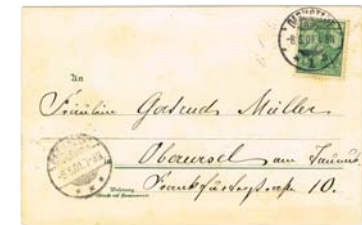 An
Fräulein Gertrud Müller
Oberursel am Taunus
Frankfurterstraße 10.
Wohnung